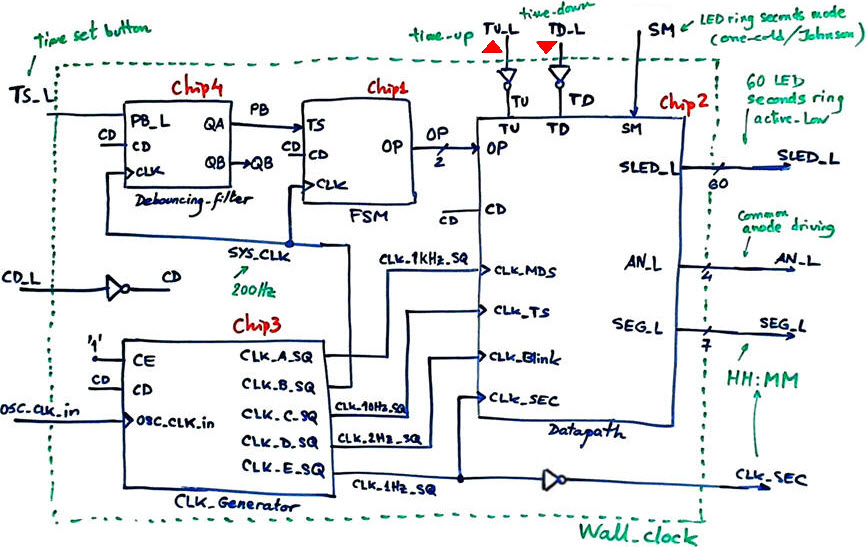 time set button
TS_L
time-up
TU_L
time-down
TD_L
SM
LED ring seconds mode
(one-cold/Johnson)
TU
TD
Chip4
PB_L
CD
CD
CLK
QA
QB
QB
PB
Debouncing_filter
Chip1
TS
CD
CD
CLK
OP
FSM
OP
2
Chip2
TU
TD
SM
OP
CD
CD
CLK_MDS
CLK_TS
CLK_Blink
CLK_SEC
SLED_L
AN_L
SEG_L
Datapath
60 LED
seconds ring
active-Low
SLED_L
60
Common
anode driving
AN_L
4
SEG_L
7
HH:MM
SYS_CLK
200Hz
CLK_1kHz_SQ
CD_L
CD
Chip3
'1'
CE
CD
CD
OSC_CLK_in
OSC_CLK_in
CLK_A_SQ
CLK_B_SQ
CLK_C_SQ
CLK_D_SQ
CLK_E_SQ
CLK_10Hz_SQ
CLK_2Hz_SQ
CLK_1Hz_SQ
CLK_Generator
CLK_SEC
Wall_clock